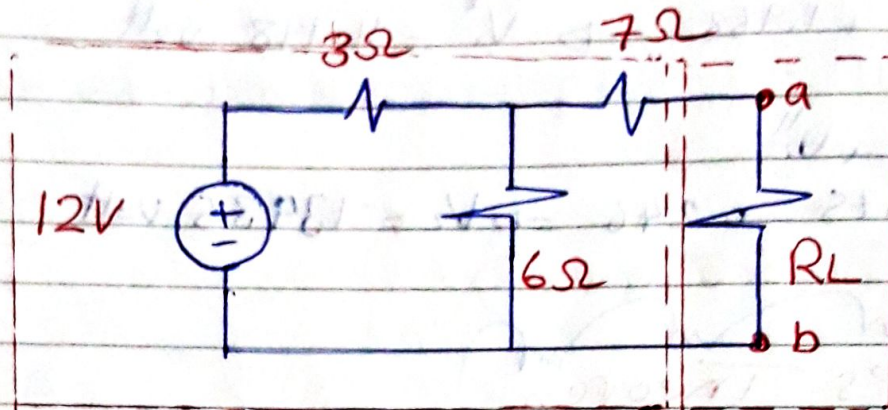 3Ω 7Ω
a
12V + -
6Ω RL
b